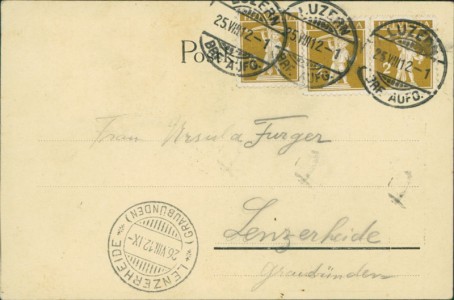 LUZERN LUZERN LUZERN
25.VIII.12-1 25.VIII.12-1 25.VIII.12-1
BRF. AUFG. BRF. AUFG. BRF. AUFG.
Frau Ursula Furger
Lenzerheide
Graubünden
LENZERHEIDE
(GRAUBÜNDEN)
26.VIII.12.IX-